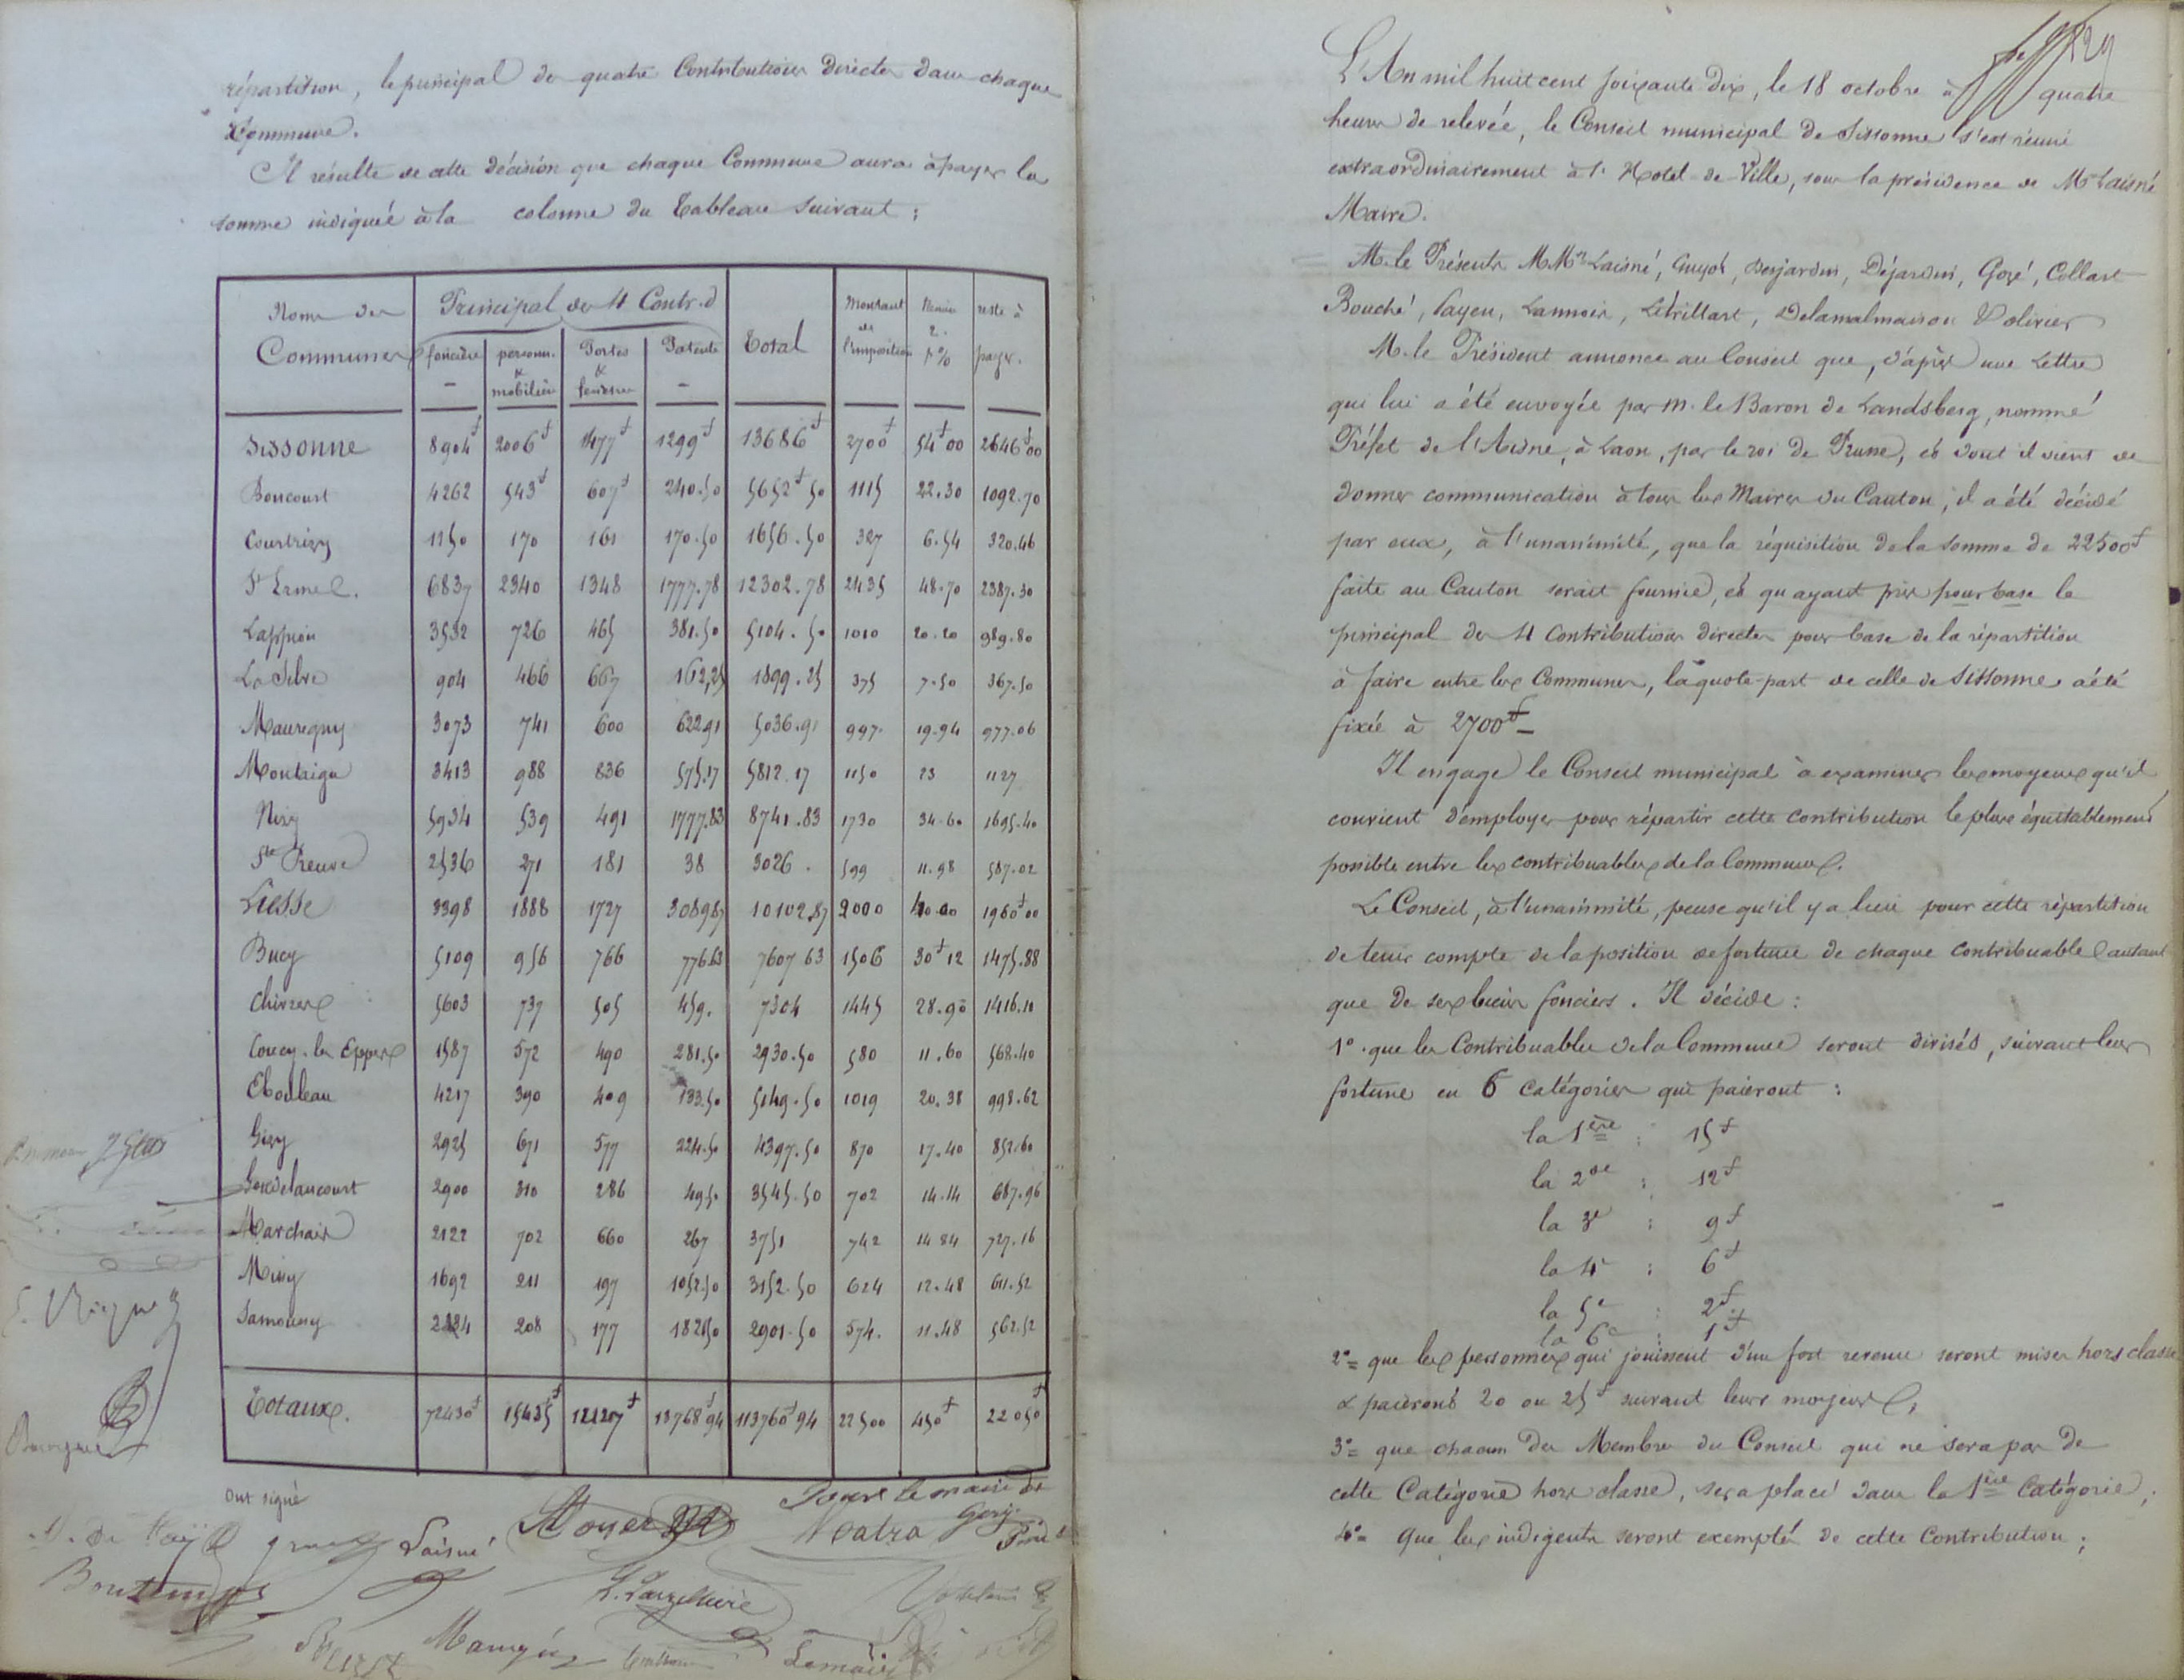 répartition, le principal des quatre Contributions directes dans chaque
Commune.
Il résulte de cette décision que chaque Commune aura à payer la
somme indiquée à la colonne du Tableau suivant :
Noms des Communes | Principal des 4 Contr. d | Total | Montant de l'imposition | Moins 2 p % | reste à payer.
foncière | person. & mobilière | Portes & fenêtres | Patente
Sissonne 8904f 2006f 1477f 1299f 13686f 2700f 54f00 2646f00
Boncourt 4262 543f 607f 240.50 5652f50 1115 22.30 1092.70
Courtrizy 1150 170 161 170.50 1656.50 327 6.54 320.46
St Erme. 6837 2340 1348 1777.78 12302.78 2435 48.70 2387.30
Lappion 3532 726 465 381.50 5104.50 1010 20.20 989.80
La Selve 904 466 667 162,25 1899.25 375 7.50 367.50
Mauregny 3073 741 600 622.91 5036.91 997. 19.94 977.06
Montaigu 3413 988 836 575.17 5812.17 1150 23 1127
Nizy 5934 539 491 1777.83 8741.83 1730 34.60 1695.40
Ste Preuve 2536 271 181 38 3026. 599 11.98 587.02
Liesse 3398 1888 1727 3089.87 10102.87 2000 40.00 1960f00
Bucy 5109 956 766 776.63 7607 63 1506 30f12 1475.88
Chivres 5603 737 505 459. 7304 1445 28.90 1416.10
Coucy-les Eppes 1587 572 490 281.50 2930.50 580 11.60 568.40
Ebouleau 4217 390 409 133.50 5149.50 1019 20.38 998.62
Gizy 2925 671 577 224.50 4397.50 870 17.40 852.60
Goudelancourt 2900 310 286 49.50 3545.50 702 14.14 687.96
Marchais 2122 702 660 267 3751 742 14 84 727.16
Missy 1692 211 197 1052.50 3152.50 624 12.48 611.52
Samoussy 208 177 182.50 2901.50 574. 11.48 562.52
Totaux. 72430f 15435f 12127f 13768f94 113760f94 22500 450f 22050f
Ont signé
Laisné
Pour le maire de
Gizy
L'An mil huit cent soixante dix, le 18 octobre à quatre
heures de relevée, le Conseil municipal de Sissonne s'est réuni
extraordinairement à l'Hotel-de-Ville, sous la présidence de Mr Laisné
Maire.
M. le Présents MMrs Laisné, Guyot, Desjardin, Déjardin, Gozé, Collart
Bouché, Payen, Lannois, Létrillart, Delamalmaison Volivier
M. le Président annonce au Conseil que, d'après une Lettre
qui lui a été envoyée par M. le Baron de Landsberg, nommé
Préfet de l'Aisne, à Laon, par le roi de Prusse, et dont il vient de
donner communication à tous les Maires du Canton, il a été décidé
par eux, à l'unanimité, que la réquisition de la somme de 22500f
faite au Canton serait fournie, et qu'ayant pris pour base le
principal des 4 Contributions directes pour base de la répartition
à faire entre les Communes, la quote-part de celle de Sissonne a été
fixée à 2700f
Il engage le Conseil municipal à examiner les moyens qu'il
convient d'employer pour répartir cette contribution le plus équitablement
possible entre les contribuables de la Commune.
Le Conseil, à l'unanimité, pense qu'il y a lieu pour cette répartition
de tenir compte de la position de fortune de chaque contribuable autant
que de ses biens fonciers. Il décide :
1°. que les Contribuables de la Commune seront divisés, suivant leur
fortune en 6 catégories qui paieront :
la 1ère : 15f
la 2de : 12f
la 3e : 9f
la 4e : 6f
la 5e : 2f
la 6e : 1f
2°= que les personnes qui jouissent d'un fort revenu seront mises hors classe
& paieront 20 ou 25f suivant leurs moyens ;
3°= que chacun des Membres du Conseil qui ne sera pas de
cette Catégorie hors classe, sera placé dans la 1ère Catégorie ;
4°= Que les indigents seront exemptés de cette Contribution ;